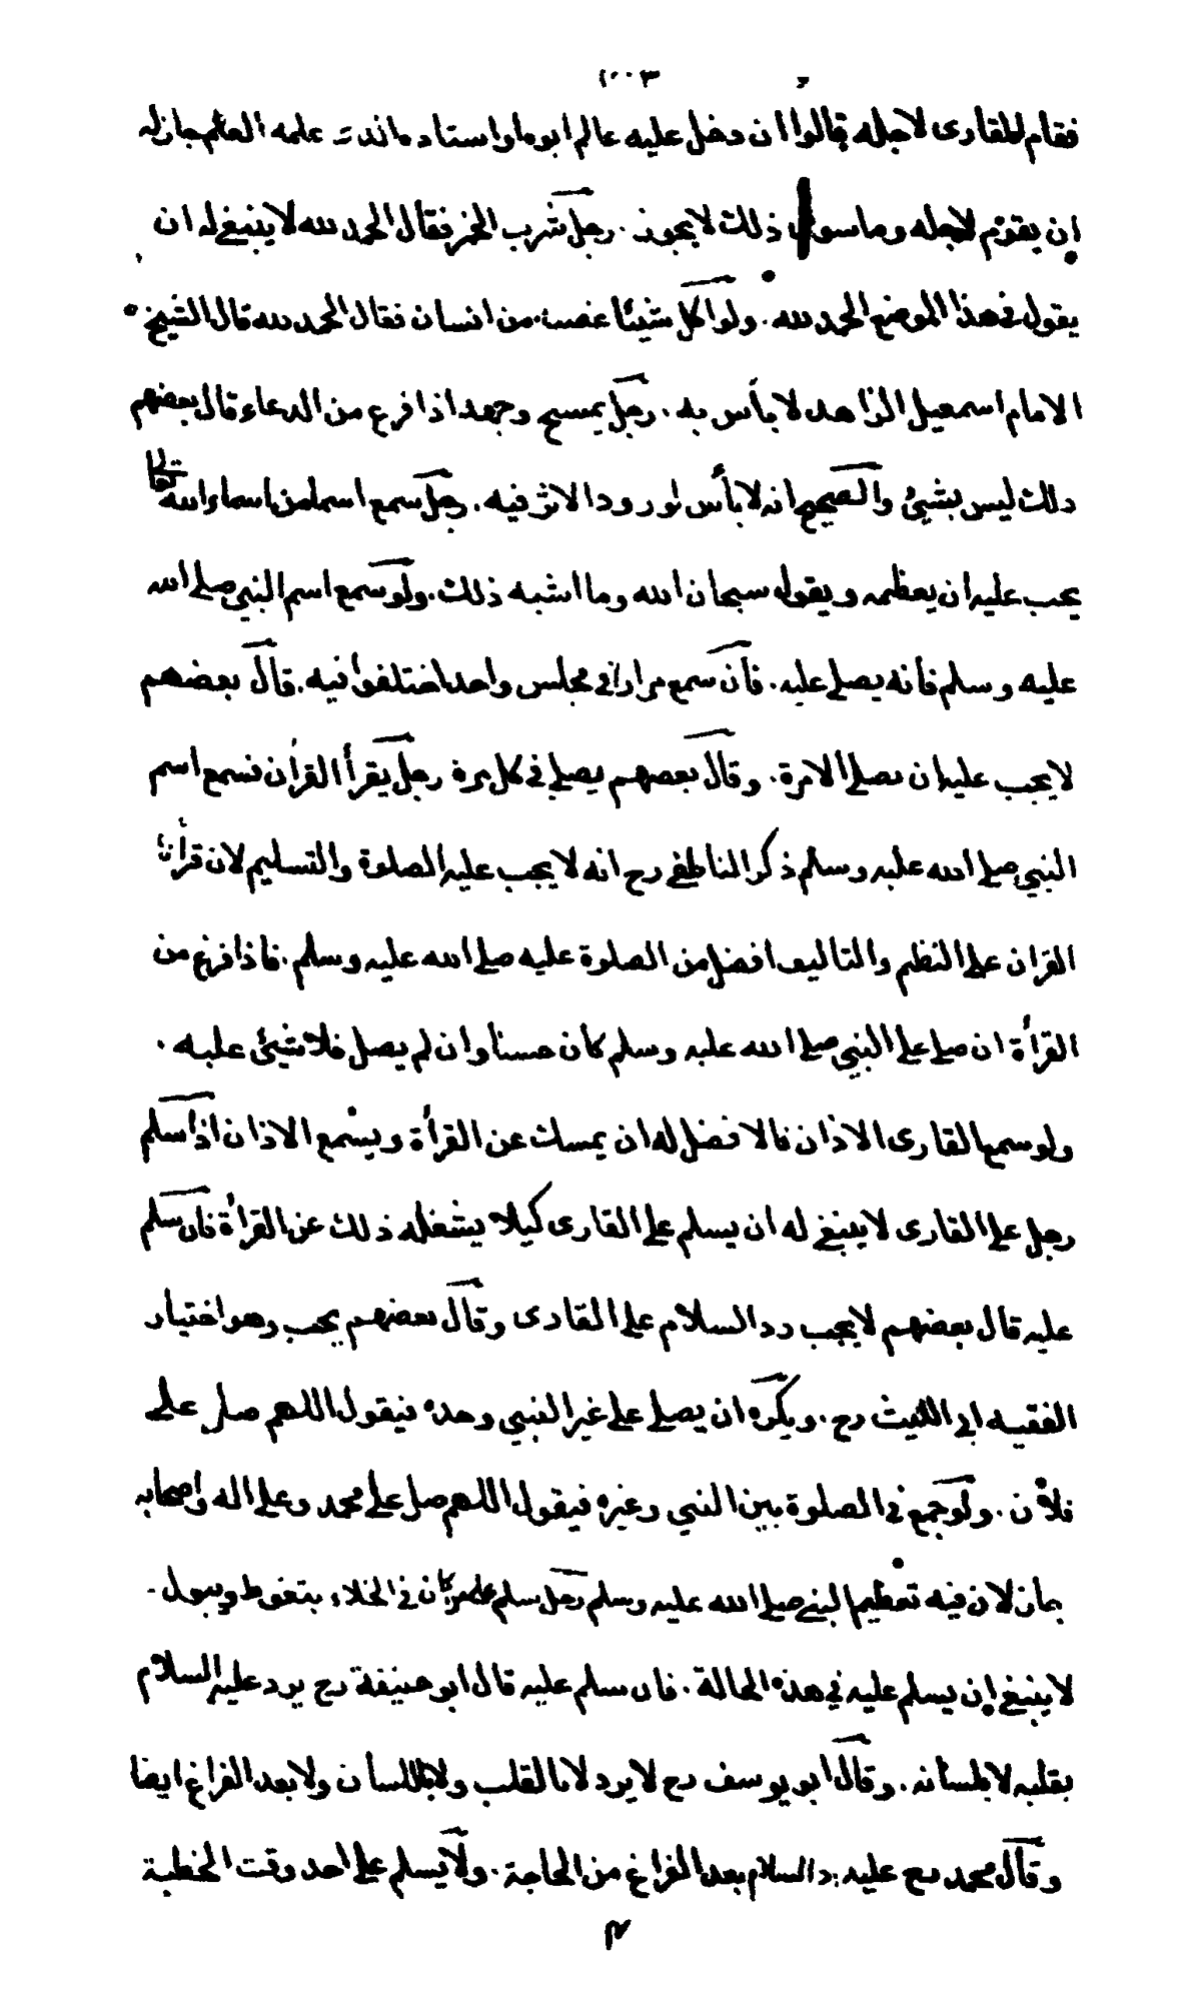 ١٠٠٣
فقام القارى لاجله قالوا ان دخل عليه عالم او ابوه او استاده الذى علمه العلم جاز له
ان يقوم لاجله وما سوى ذلك لا يجوز . رجل شرب الخمر فقال الحمد لله لا ينبغى له ان
يقول فى هذا الموضع الحمد لله . ولو اكل شيئا غصبه من انسان فقال الحمد لله قال الشيخ
الامام اسمعيل الزاهد لا بأس به . رجل يمسح وجهه اذا فرغ من الدعاء قال بعضهم
ذلك ليس بشئ والصحيح انه لا بأس لورود الاثر فيه . رجل سمع اسما من اسماء الله تعالى
يجب عليه ان يعظمه ويقول سبحان الله وما اشبه ذلك . ولو سمع اسم النبي صلى الله
عليه وسلم فأنه يصلى عليه . فأن سمع مرارا فى مجلس واحد اختلفوا فيه . قال بعضهم
لا يجب عليه ان يصلى الا مرة . وقال بعضهم يصلى فى كل مرة رجل يقرأ القرأن فسمع اسم
النبي صلى الله عليه وسلم ذكر الناطفى رح انه لا يجب عليه الصلوة والتسليم لان قرأة
القران على النظم والتاليف افضل من الصلوة عليه صلى الله عليه وسلم . فاذا فرغ من
القرأة ان صلى على النبي صلى الله عليه وسلم كان حسنا وان لم يصل فلا شئ عليه .
ولو سمع القارى الاذان فالافضل له ان يمسك عن القرأة ويسمع الاذان اذا سلم
رجل على القارى لا ينبغى له ان يسلم على القارى كيلا يشغله ذلك عن القرأة فان سلم
عليه قال بعضهم لا يجب رد السلام على القارى وقال بعضهم يجب وهو اختيار
الفقيه ابى الليث رح . ويكره ان يصلى على غير النبي وحده فيقول اللهم صل على
فلان . ولو جمع فى الصلوة بين النبي وغيره فيقول اللهم صل على محمد وعلى اله واصحابه
جاز لان فيه تعظيم النبي صلى الله عليه وسلم رجل سلم على من كان فى الخلاء يتغوط ويبول
لا ينبغى ان يسلم عليه فى هذه الحالة . فان سلم عليه قال ابو حنيفة رح يرد عليه السلام
بقلبه لا بلسانه . وقال ابو يوسف رح لا يرد لا بالقلب ولا باللسان ولا بعد الفراغ ايضا
وقال محمد رح عليه رد السلام بعد الفراغ من الحاجة . ولا يسلم على احد وقت الخطبة